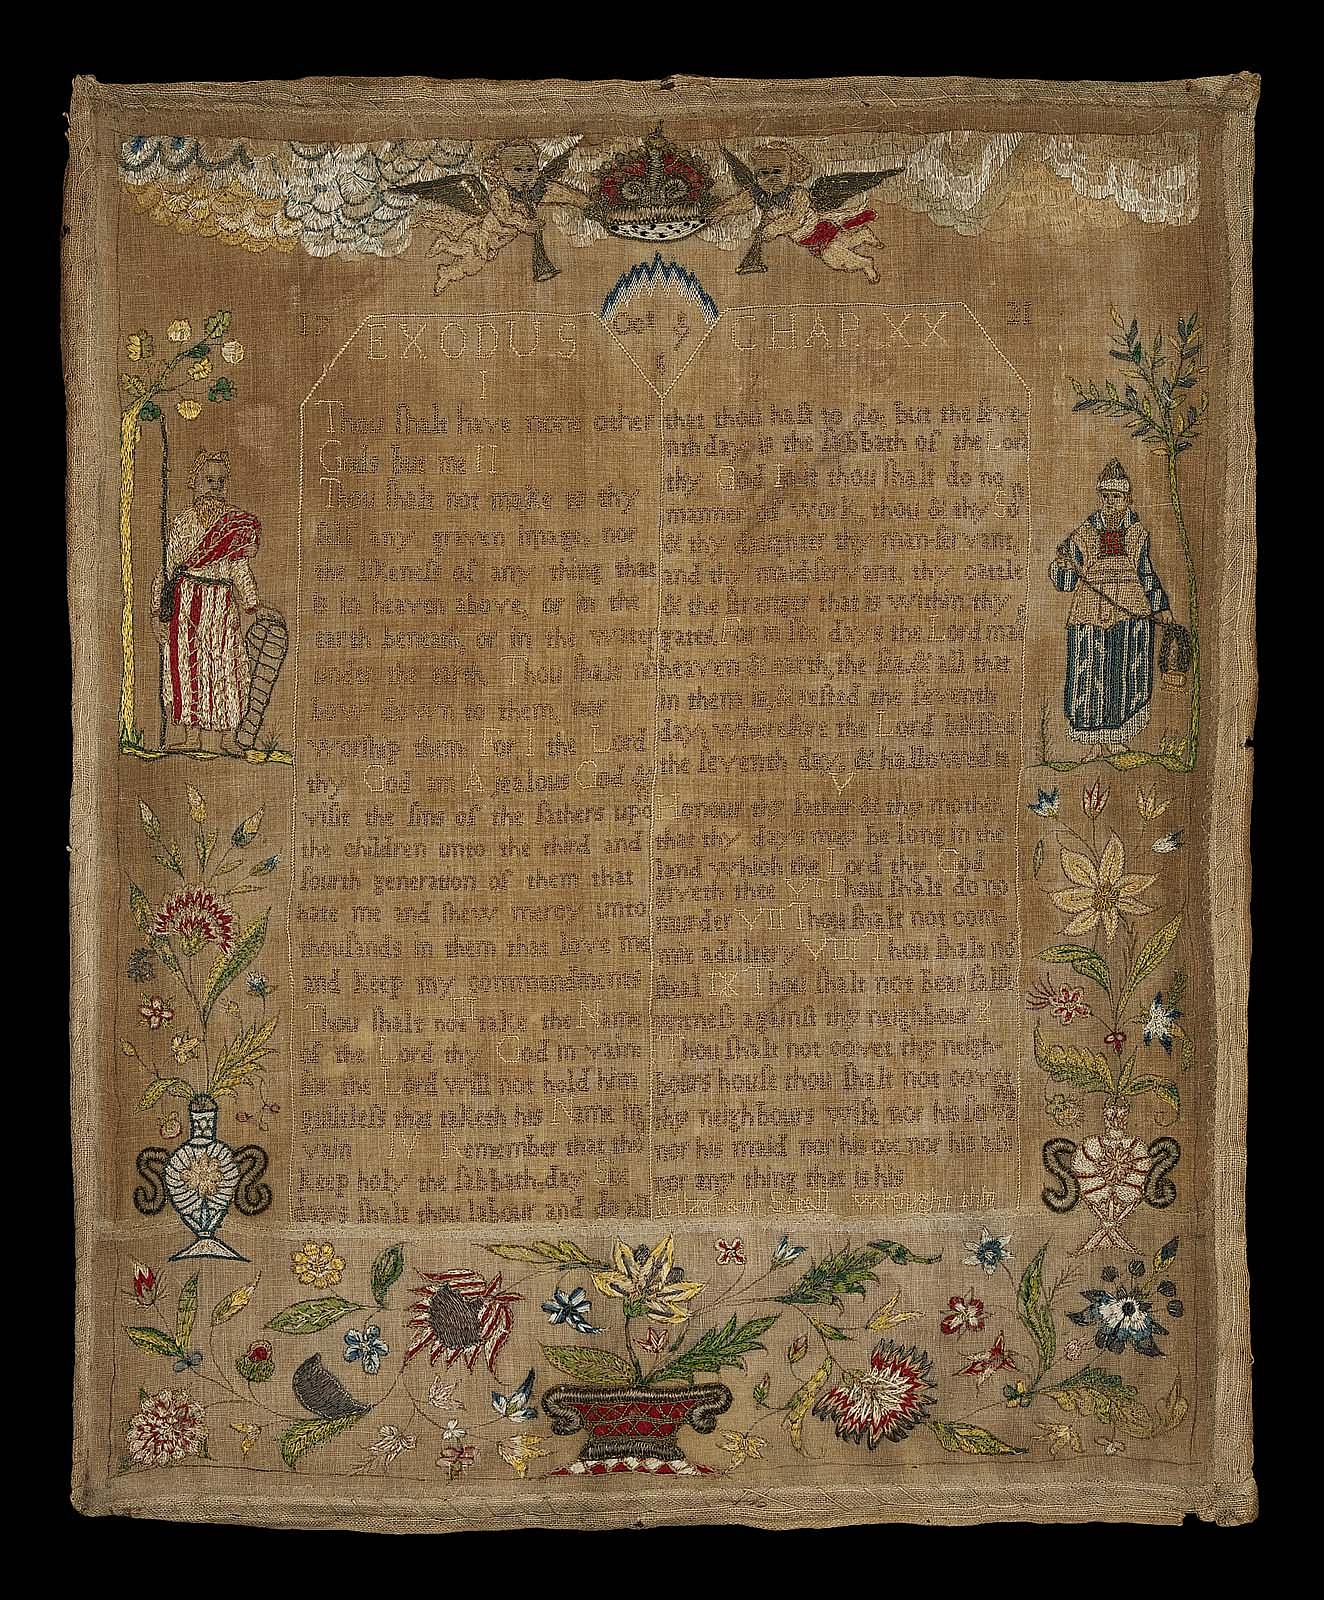 17 EXODUS Oct 9 CHAP XX 21
I
Thou shalt have none other
Gods but me II
Thou shalt not make to thy
self any graven image, nor
the likeness of any thing that
is in heaven above, or in the
earth beneath, or in the water
under the earth. Thou shalt no
bow down to them, nor
worship them. For I the Lord
thy God am A jealous God &
visit the sins of the fathers upo
the children unto the third and
fourth generation of them that
hate me and shew mercy unto
thousands in them that love me
and keep my commandments
Thou shalt not take the Name
of the Lord thy God in vain
for the Lord will not hold him
guiltless that taketh his Name in
vain IV Remember that tho
keep holy the sabbath-day Six
days shalt thou labour and do all
that thou hast to do, but the seve
nth day is the sabbath of the Lor
thy God In it thou shalt do no
manner of work, thou & thy So
& thy daughter thy man-servant,
and thy maidservant thy cattle
& the stranger that is within thy
gates. For in six days the Lord mad
heaven & earth, the sea, & all that
in them is, & rested the seventh
day, wherefore the Lord blessed
the seventh day, & hallowed it
V
Honour thy father & thy mother,
that thy days may be long in the
land which the Lord thy God
giveth thee VI Thou shalt do no
murder VII Thou shalt not com-
mit adultery VIII Thou shalt no
steal IX Thou shalt not bear fals
witness against thy neighbour X
Thou shalt not covet thy neigh-
bours house thou shalt not covet
thy neighbours wife nor his serva
nor his maid nor his ox, nor his ass
nor any thing that is his
Elizabeth wrought